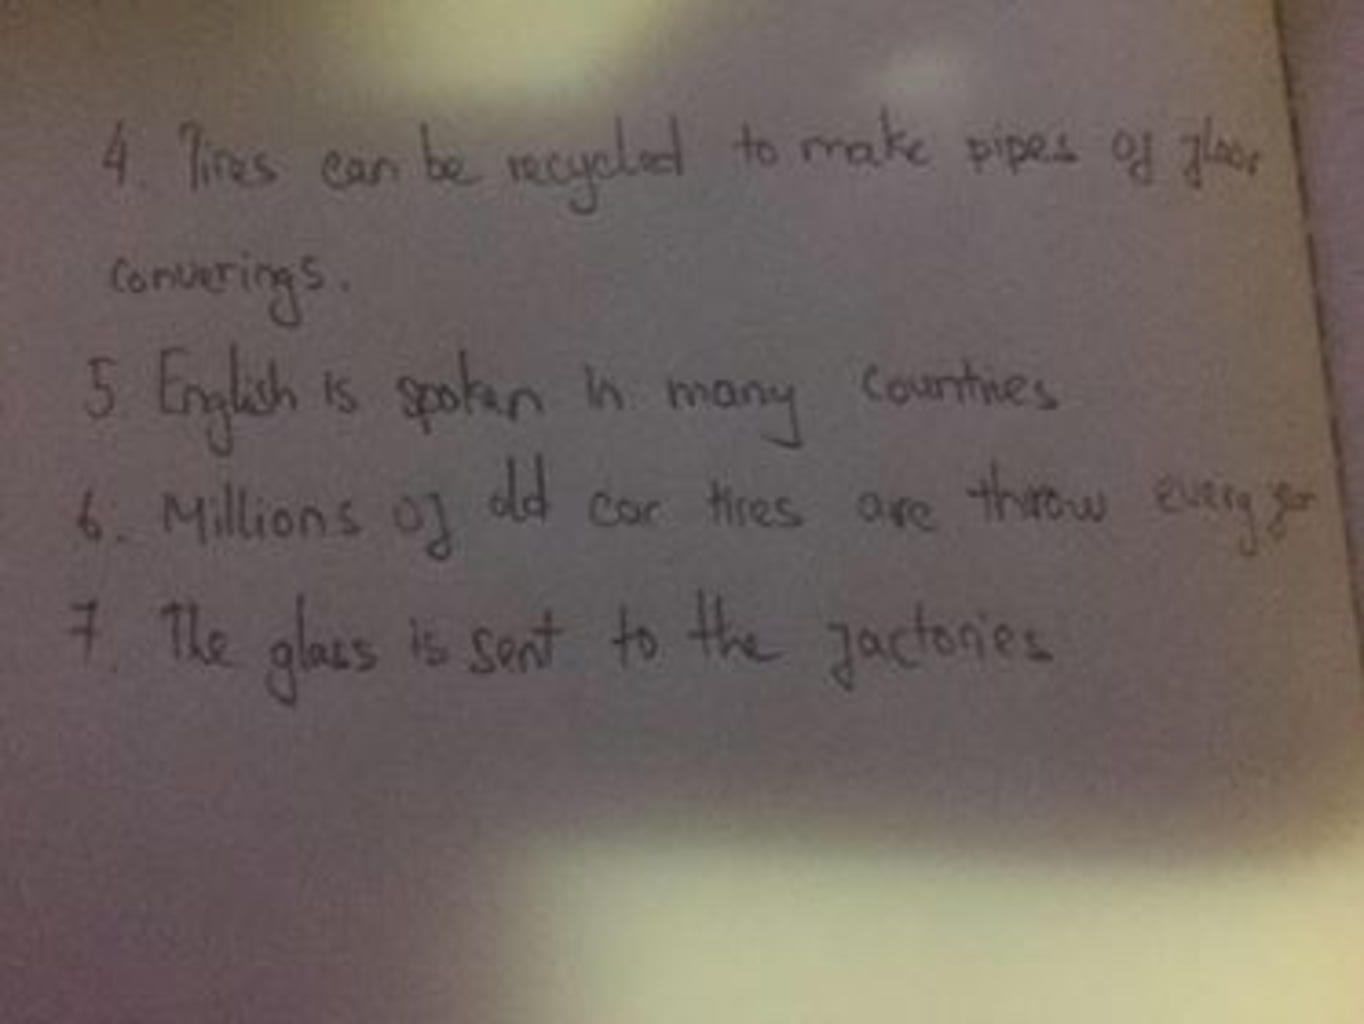 4. Tires can be recycled to make pipes of floor
converings.
5 English is spoken in many countries
6. Millions of old car tires are throw every year
7. The glass is sent to the factories